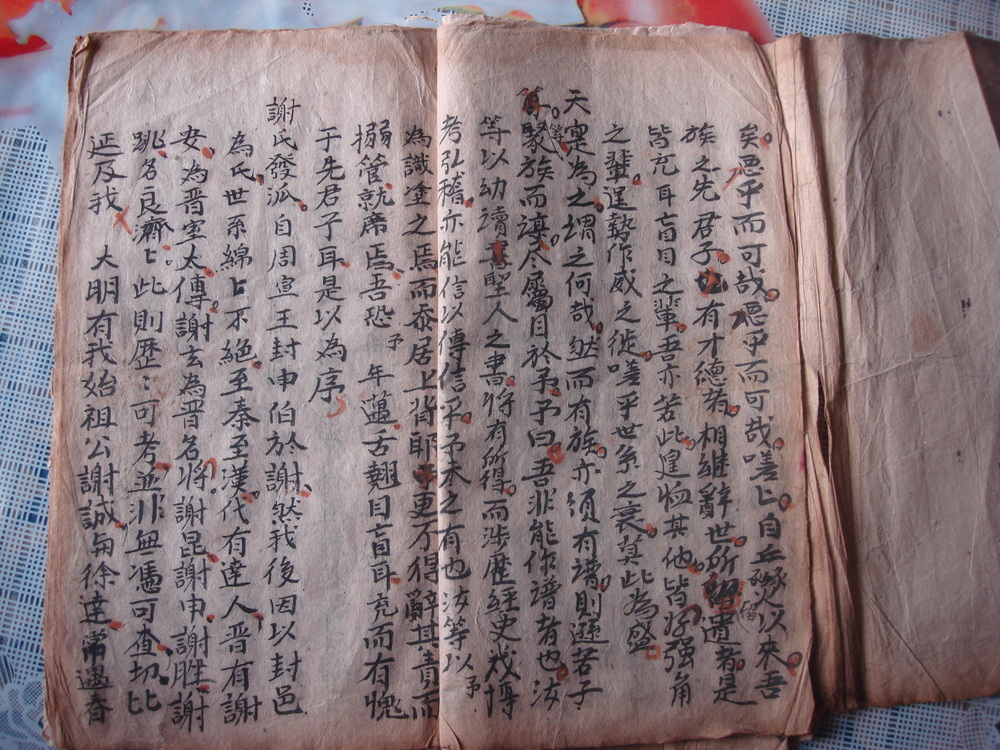 矣惡乎而可哉惡乎而可哉嗟上自以來吾
族之先君子有才德者相繼辭世所遺者是
皆充耳盲目之輩吾亦苦此遑恤其他皆好強角
之輩逞勢作威之徙嗟乎世系之衰莫此為盛
天寔為之謂之何哉然而有族亦須有譜則遜若子
聚族而謀尽屬目於予予曰吾非能作譜者也汝
等以幼讀聖人之書將有所得而涉歷經史戎博
考弘稽亦能信以傳信乎予未之有也汝等以予
為識塗之焉而忝居上背耶更不得辭其責而
搦管就席焉吾恐予年邁古麹目盲耳充而有愧
于先君子耳是以為序
謝氏發派自周宣王封申伯於謝然我後因以封邑
為氏世系綿上不絕至秦至漢代有達人晋有謝
安為晋室太傳謝玄為晋名將謝昆謝申謝胜謝
眺名良濟上此則歷：可考並非無馮可查切比
延及我 大明有我始祖公謝誠匆徐達常遇春